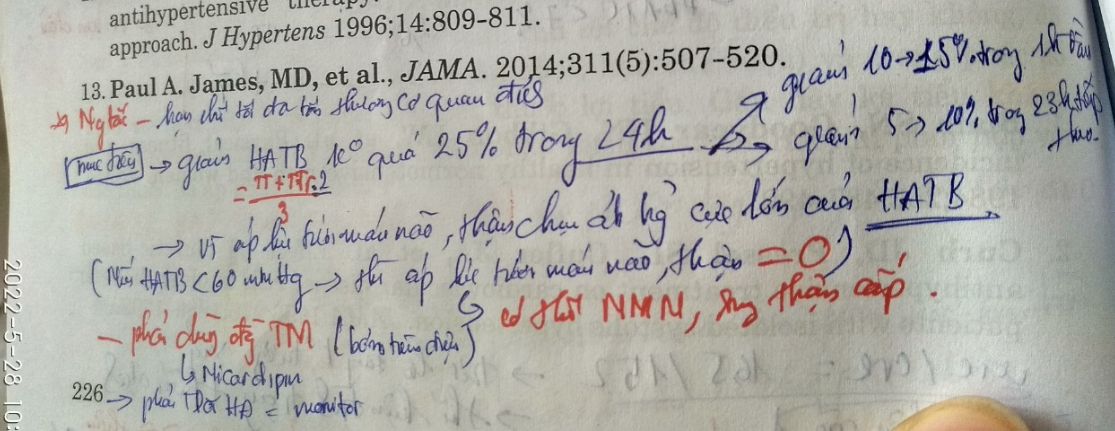 antihypertensive therapy.
approach. J Hypertens 1996;14:809-811.
13. Paul A. James, MD, et al., JAMA. 2014;311(5):507-520.
hạn chế tối đa tổn thương cơ quan đích
mục tiêu → giảm HATB k° quá 25% trong 24h
giảm 10→15% trong 1h đầu
giảm 5→10% trong 23h tiếp theo.
= TT+TTr.2
3
→ vì áp lực tưới máu não, thận chịu ảh hg cực lớn của HATB
(Nếu HATB <60 mmHg → thì áp lực tưới máu não, thận = 0)
có thể NMN, suy thận cấp.
- phải dùng đg TM (bơm tiêm điện)
↳ Nicardipin
226 → phải TDõi HA = monitor
2022-5-28 10: